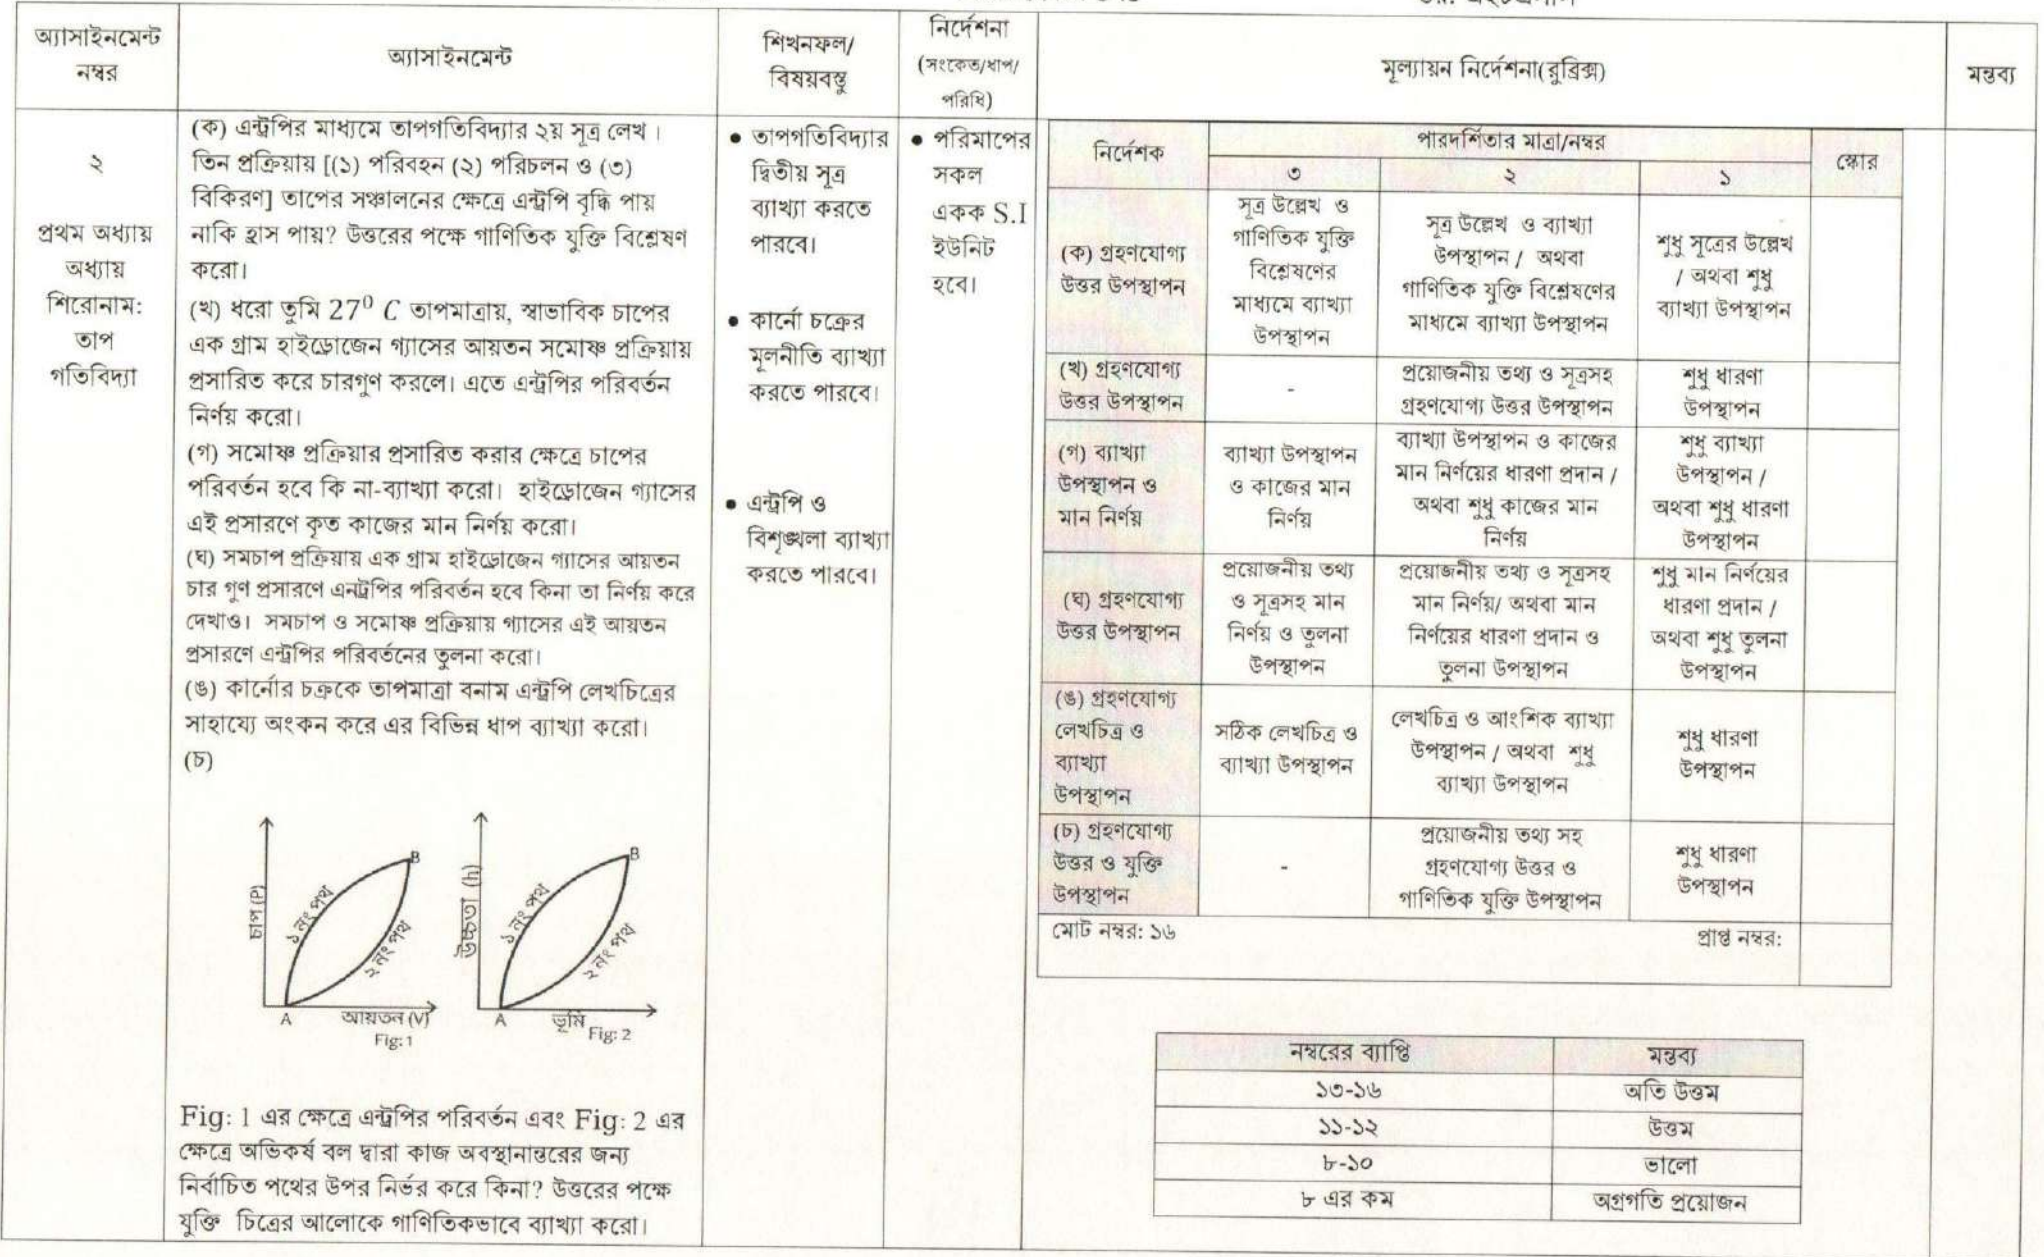 অ্যাসাইনমেন্ট
নম্বর
অ্যাসাইনমেন্ট
শিখনফল/
বিষয়বস্তু
নির্দেশনা
(সংকেত/ধাপ/
পরিধি)
মূল্যায়ন নির্দেশনা(রুব্রিক্স)
মন্তব্য
২
প্রথম অধ্যায়
অধ্যায়
শিরোনাম:
তাপ
গতিবিদ্যা
(ক) এন্ট্রপির মাধ্যমে তাপগতিবিদ্যার ২য় সূত্র লেখ।
তিন প্রক্রিয়ায় [(১) পরিবহন (২) পরিচলন ও (৩)
বিকিরণ] তাপের সঞ্চালনের ক্ষেত্রে এন্ট্রপি বৃদ্ধি পায়
নাকি হ্রাস পায়? উত্তরের পক্ষে গাণিতিক যুক্তি বিশ্লেষণ
করো।
(খ) ধরো তুমি 27⁰ C তাপমাত্রায়, স্বাভাবিক চাপের
এক গ্রাম হাইড্রোজেন গ্যাসের আয়তন সমোষ্ণ প্রক্রিয়ায়
প্রসারিত করে চারগুণ করলে। এতে এন্ট্রপির পরিবর্তন
নির্ণয় করো।
(গ) সমোষ্ণ প্রক্রিয়ার প্রসারিত করার ক্ষেত্রে চাপের
পরিবর্তন হবে কি না-ব্যাখ্যা করো। হাইড্রোজেন গ্যাসের
এই প্রসারণে কৃত কাজের মান নির্ণয় করো।
(ঘ) সমচাপ প্রক্রিয়ায় এক গ্রাম হাইড্রোজেন গ্যাসের আয়তন
চার গুণ প্রসারণে এনট্রপির পরিবর্তন হবে কিনা তা নির্ণয় করে
দেখাও। সমচাপ ও সমোষ্ণ প্রক্রিয়ায় গ্যাসের এই আয়তন
প্রসারণে এন্ট্রপির পরিবর্তনের তুলনা করো।
(ঙ) কার্নোর চক্রকে তাপমাত্রা বনাম এন্ট্রপি লেখচিত্রের
সাহায্যে অংকন করে এর বিভিন্ন ধাপ ব্যাখ্যা করো।
(চ)
চাপ (P)
১ নং পথ
২ নং পথ
B
A
আয়তন (V)
Fig: 1
উচ্চতা (h)
১ নং পথ
২ নং পথ
B
A
ভূমি
Fig: 2
Fig: 1 এর ক্ষেত্রে এন্ট্রপির পরিবর্তন এবং Fig: 2 এর
ক্ষেত্রে অভিকর্ষ বল দ্বারা কাজ অবস্থানান্তরের জন্য
নির্বাচিত পথের উপর নির্ভর করে কিনা? উত্তরের পক্ষে
যুক্তি চিত্রের আলোকে গাণিতিকভাবে ব্যাখ্যা করো।
• তাপগতিবিদ্যার
দ্বিতীয় সূত্র
ব্যাখ্যা করতে
পারবে।
• কার্নো চক্রের
মূলনীতি ব্যাখ্যা
করতে পারবে।
• এন্ট্রপি ও
বিশৃঙ্খলা ব্যাখ্যা
করতে পারবে।
• পরিমাপের
সকল
একক S.I
ইউনিট
হবে।
নির্দেশক
পারদর্শিতার মাত্রা/নম্বর
স্কোর
৩
২
১
(ক) গ্রহণযোগ্য
উত্তর উপস্থাপন
সূত্র উল্লেখ ও
গাণিতিক যুক্তি
বিশ্লেষণের
মাধ্যমে ব্যাখ্যা
উপস্থাপন
সূত্র উল্লেখ ও ব্যাখ্যা
উপস্থাপন / অথবা
গাণিতিক যুক্তি বিশ্লেষণের
মাধ্যমে ব্যাখ্যা উপস্থাপন
শুধু সূত্রের উল্লেখ
/ অথবা শুধু
ব্যাখ্যা উপস্থাপন
(খ) গ্রহণযোগ্য
উত্তর উপস্থাপন
-
প্রয়োজনীয় তথ্য ও সূত্রসহ
গ্রহণযোগ্য উত্তর উপস্থাপন
শুধু ধারণা
উপস্থাপন
(গ) ব্যাখ্যা
উপস্থাপন ও
মান নির্ণয়
ব্যাখ্যা উপস্থাপন
ও কাজের মান
নির্ণয়
ব্যাখ্যা উপস্থাপন ও কাজের
মান নির্ণয়ের ধারণা প্রদান /
অথবা শুধু কাজের মান
নির্ণয়
শুধু ব্যাখ্যা
উপস্থাপন /
অথবা শুধু ধারণা
উপস্থাপন
(ঘ) গ্রহণযোগ্য
উত্তর উপস্থাপন
প্রয়োজনীয় তথ্য
ও সূত্রসহ মান
নির্ণয় ও তুলনা
উপস্থাপন
প্রয়োজনীয় তথ্য ও সূত্রসহ
মান নির্ণয়/ অথবা মান
নির্ণয়ের ধারণা প্রদান ও
তুলনা উপস্থাপন
শুধু মান নির্ণয়ের
ধারণা প্রদান /
অথবা শুধু তুলনা
উপস্থাপন
(ঙ) গ্রহণযোগ্য
লেখচিত্র ও
ব্যাখ্যা
উপস্থাপন
সঠিক লেখচিত্র ও
ব্যাখ্যা উপস্থাপন
লেখচিত্র ও আংশিক ব্যাখ্যা
উপস্থাপন / অথবা শুধু
ব্যাখ্যা উপস্থাপন
শুধু ধারণা
উপস্থাপন
(চ) গ্রহণযোগ্য
উত্তর ও যুক্তি
উপস্থাপন
-
প্রয়োজনীয় তথ্য সহ
গ্রহণযোগ্য উত্তর ও
গাণিতিক যুক্তি উপস্থাপন
শুধু ধারণা
উপস্থাপন
মোট নম্বর: ১৬
প্রাপ্ত নম্বর:
নম্বরের ব্যাপ্তি
মন্তব্য
১৩-১৬
অতি উত্তম
১১-১২
উত্তম
৮-১০
ভালো
৮ এর কম
অগ্রগতি প্রয়োজন